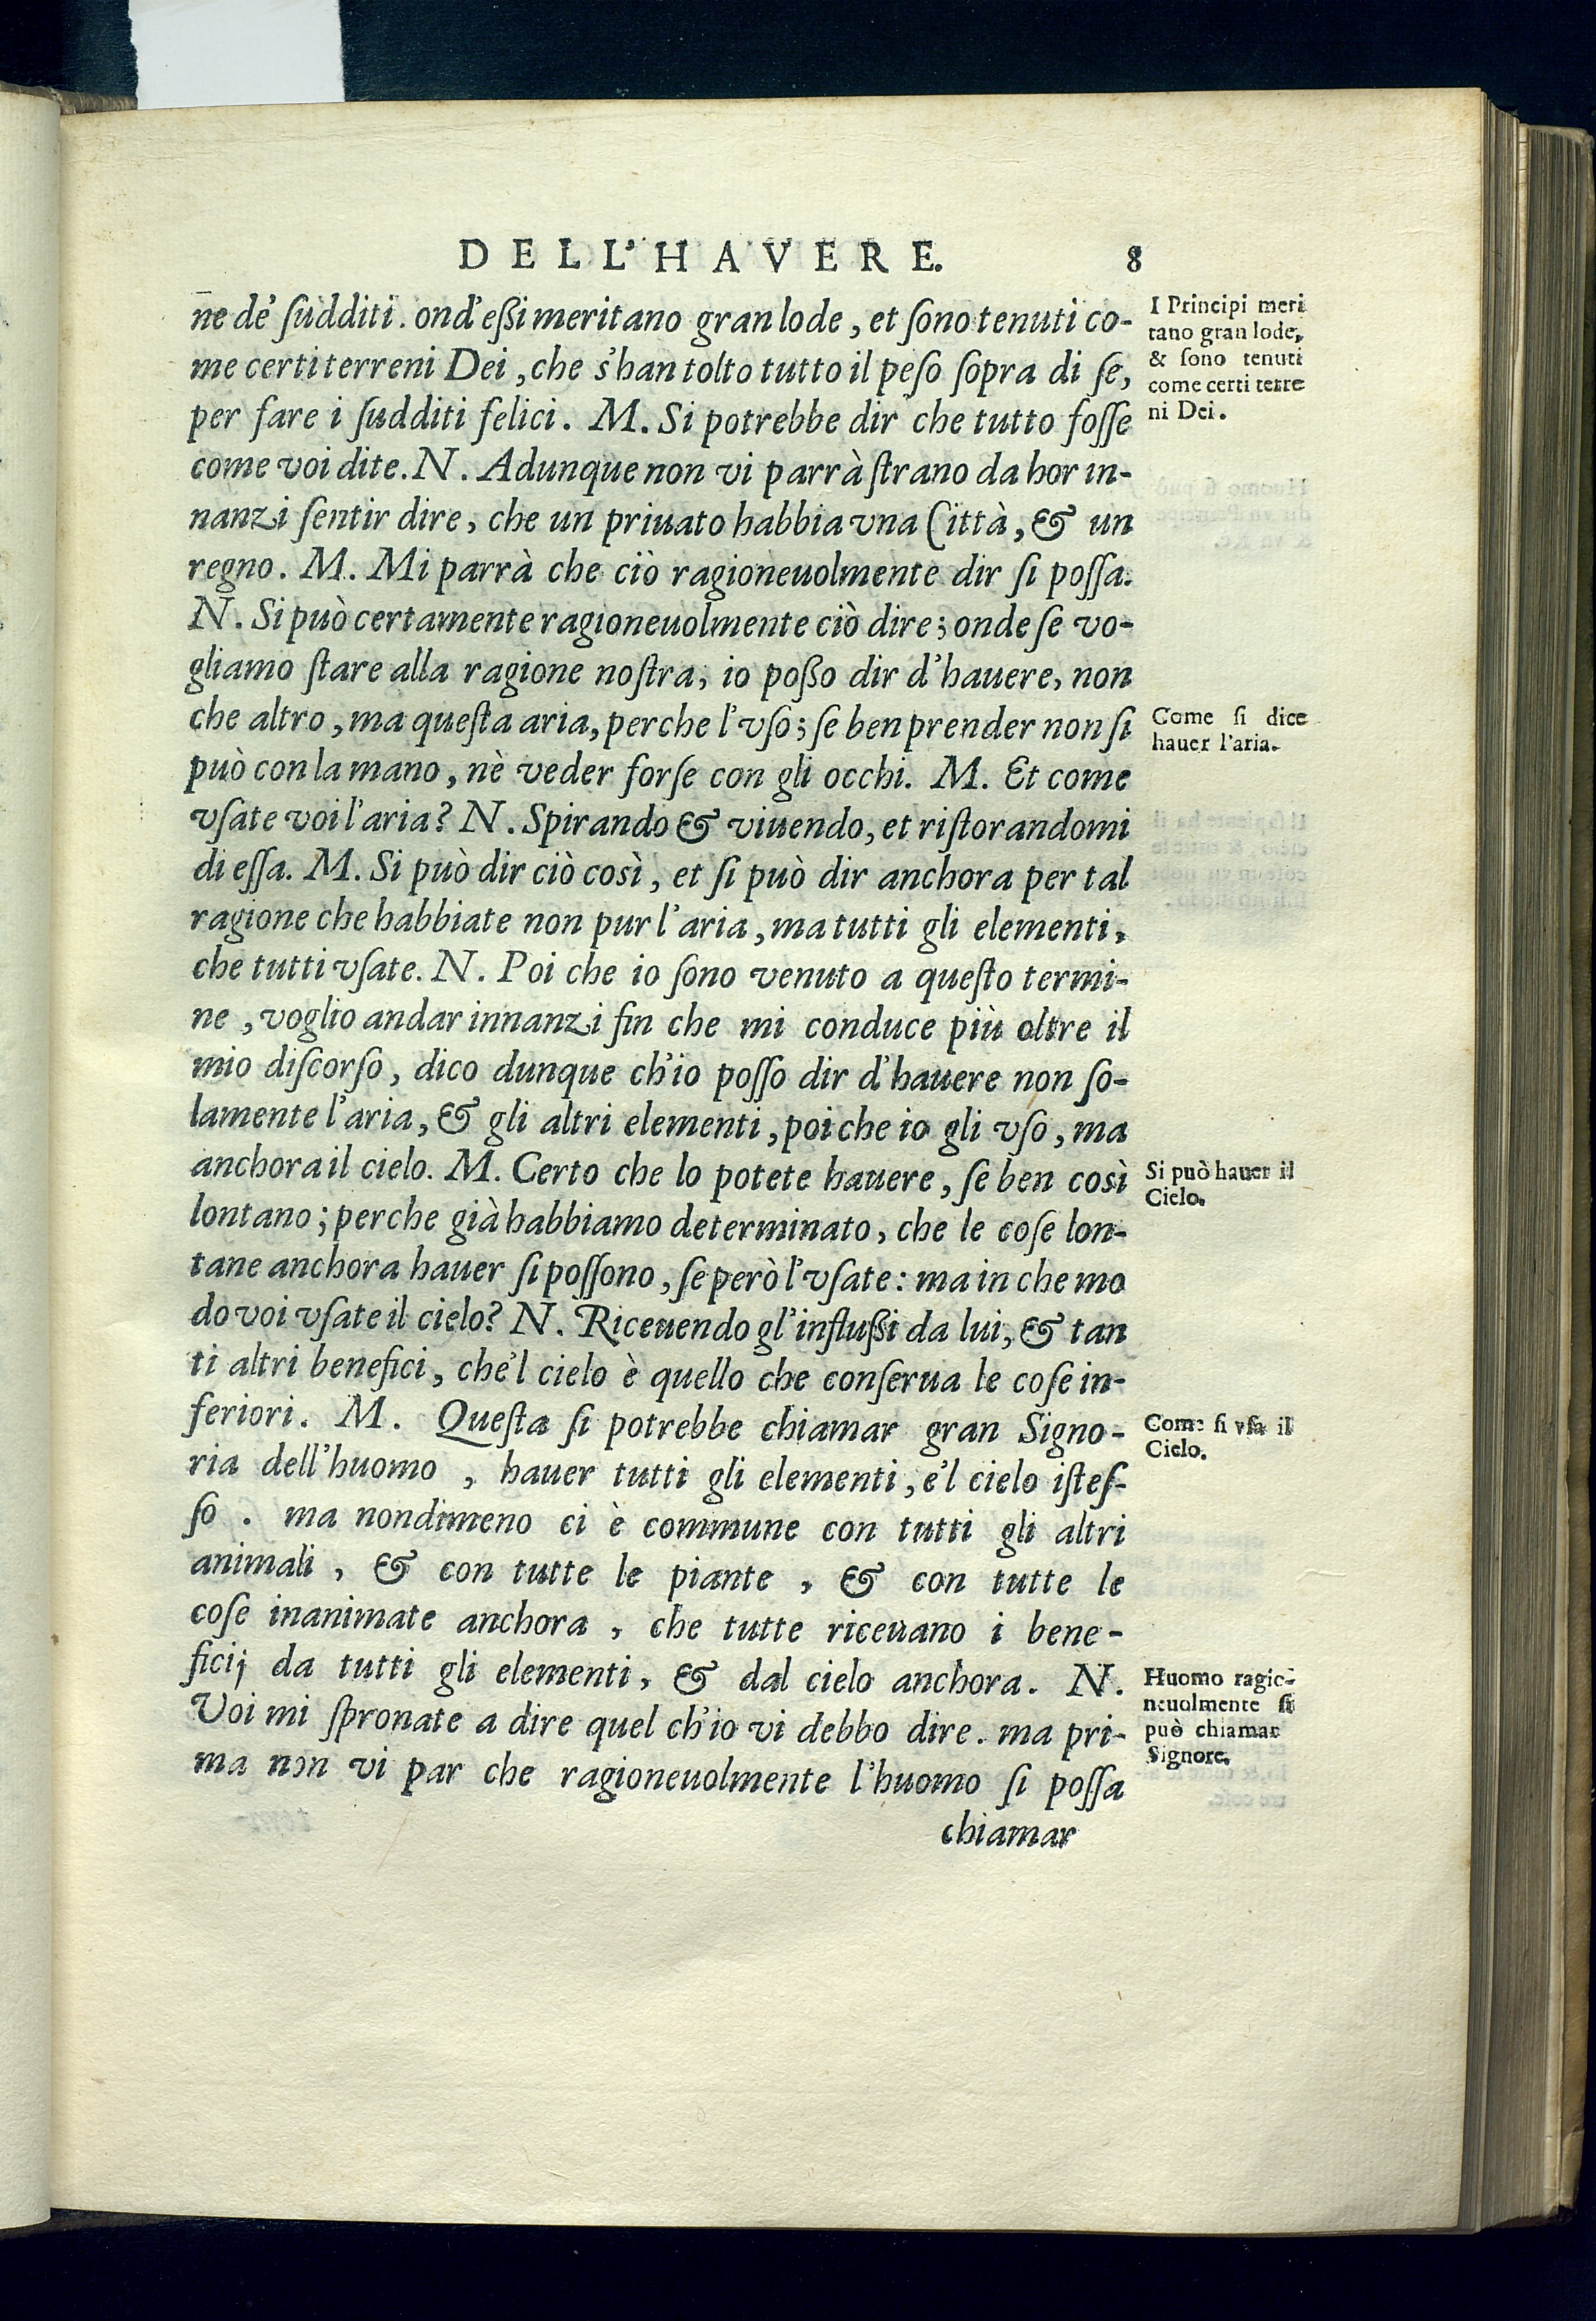 DELL'HAVERE. 8
ne de' ſudditi. ond'eßi meritano gran lode, et ſono tenuti co-
me certi terreni Dei, che s'han tolto tutto il peſo ſopra di ſe,
per fare i ſudditi felici. M. Si potrebbe dir che tutto foſſe
come voi dite. N. Adunque non vi parrà ſtrano da hor in-
nanzi ſentir dire, che un priuato habbia vna Città, & un
regno. M. Mi parrà che ciò ragioneuolmente dir ſi poſſa.
N. Si può certamente ragioneuolmente ciò dire; onde ſe vo-
gliamo ſtare alla ragione noſtra, io poßo dir d'hauere, non
che altro, ma queſta aria, perche l'vſo; ſe ben prender non ſi
può con la mano, nè veder forſe con gli occhi. M. Et come
vſate voi l'aria? N. Spirando & viuendo, et riſtorandomi
di eſſa. M. Si può dir ciò così, et ſi può dir anchora per tal
ragione che habbiate non pur l'aria, ma tutti gli elementi,
che tutti vſate. N. Poi che io ſono venuto a queſto termi-
ne, voglio andar innanzi fin che mi conduce più oltre il
mio diſcorſo, dico dunque ch'io poſſo dir d'hauere non ſo-
lamente l'aria, & gli altri elementi, poi che io gli vſo, ma
anchora il cielo. M. Certo che lo potete hauere, ſe ben così
lontano; perche già habbiamo determinato, che le coſe lon-
tane anchora hauer ſi poſſono, ſe però l'vſate: ma in che mo
do voi vſate il cielo? N. Riceuendo gl'influßi da lui, & tan
ti altri benefici, che'l cielo è quello che conſerua le coſe in-
feriori. M. Queſta ſi potrebbe chiamar gran Signo-
ria dell'huomo, hauer tutti gli elementi, e'l cielo iſteſ-
ſo. ma nondimeno ci è commune con tutti gli altri
animali, & con tutte le piante, & con tutte le
coſe inanimate anchora, che tutte riceuano i bene-
ficij da tutti gli elementi, & dal cielo anchora. N.
Voi mi ſpronate a dire quel ch'io vi debbo dire. ma pri-
ma non vi par che ragioneuolmente l'huomo ſi poſſa
chiamar
I Principi meri
tano gran lode,
& ſono tenuti
come certi terre
ni Dei.
Come ſi dice
hauer l'aria.
Si può hauer il
Cielo.
Come ſi vſa il
Cielo.
Huomo ragio-
neuolmente ſi
può chiamar
Signore.